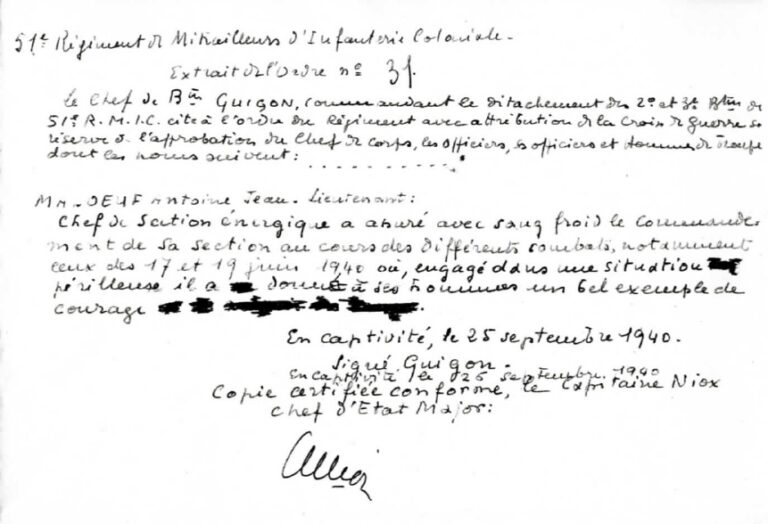 51e Régiment de Mitrailleurs d'Infanterie Coloniale.
Extrait de l'Ordre n° 31.
Le Chef de Btn GUIGON, commandant le détachement des 2e et 3e Btns du
51e R.M.I.C. cite à l'ordre du Régiment avec attribution de la Croix de guerre ss
réserve de l'approbation du Chef de Corps, les Officiers, ss officiers et hommes de troupe
dont les noms suivent: . . . . . . . . .
Antoine Jean. Lieutenant:
Chef de Section énergique a assuré avec sang froid le Commande-
ment de sa section au cours des différents combats, notamment
ceux des 17 et 19 juin 1940 où, engagé dans une situation
périlleuse il a donné à ses hommes un bel exemple de
courage.
En captivité, le 25 septembre 1940.
Signé Guigon.
En captivité le 26 septembre 1940
Copie certifiée conforme, le Capitaine Niox
Chef d'Etat Major: